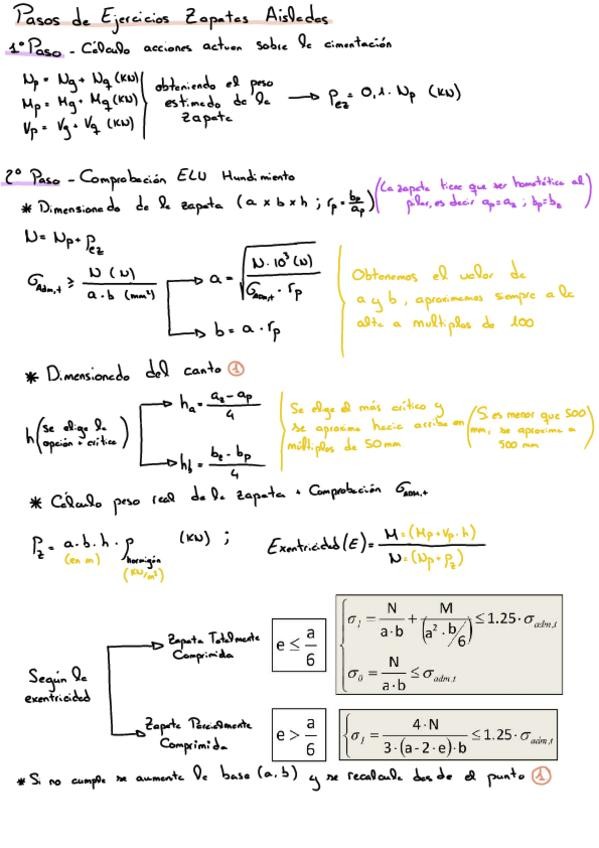 Pasos de Ejercicios Zapatas Aisladas
1º Paso - Cálculo acciones actuan sobre la cimentación
Np = Ng + Nq (KN)
Mp = Mg + Mq (KN)
Vp = Vg + Vq (KN)
obteniendo el peso
estimado de la
zapata
→ Pez = 0,1 · Np (KN)
2º Paso - Comprobación ELU Hundimiento
* Dimensionado de la zapata (a x b x h ; rp = bp/ap)
(La zapata tiene que ser homotética al
pilar, es decir ap=az ; bp=bz)
N = Np + Pez
σAdm,t ≥ N (N) / a · b (mm²)
a = √(N · 10³ (N) / σAdm,t · rp)
b = a · rp
Obtenemos el valor de
a y b, aproximamos siempre a la
alta a multiplos de 100
* Dimensionado del canto 1
h (se elige la
opción + crítica)
ha = az - ap / 4
hb = bz - bp / 4
Se elige el más crítico y
se aproxima hacia arriba en
múltiplos de 50mm
(Si es menor que 500
mm, se aproxima a
500 mm)
* Cálculo peso real de la zapata + Comprobación σADM,t
Pz = a · b · h · ρhormigón (KN) ;
(en m)
(KN/m³)
Exentricidad (E) = M = (Mp + Vp · h) / N = (Np + Pz)
Según la
exentricidad
Zapata Totalmente
Comprimida
e ≤ a/6
σ1 = N / a·b + M / (a² · b/6) ≤ 1.25 · σadm,t
σ0 = N / a·b ≤ σadm,t
Zapata Parcialmente
Comprimida
e > a/6
σ1 = 4·N / 3·(a-2·e)·b ≤ 1.25 · σadm,t
* Si no cumple se aumenta la base (a,b) y se recalcula desde el punto 1